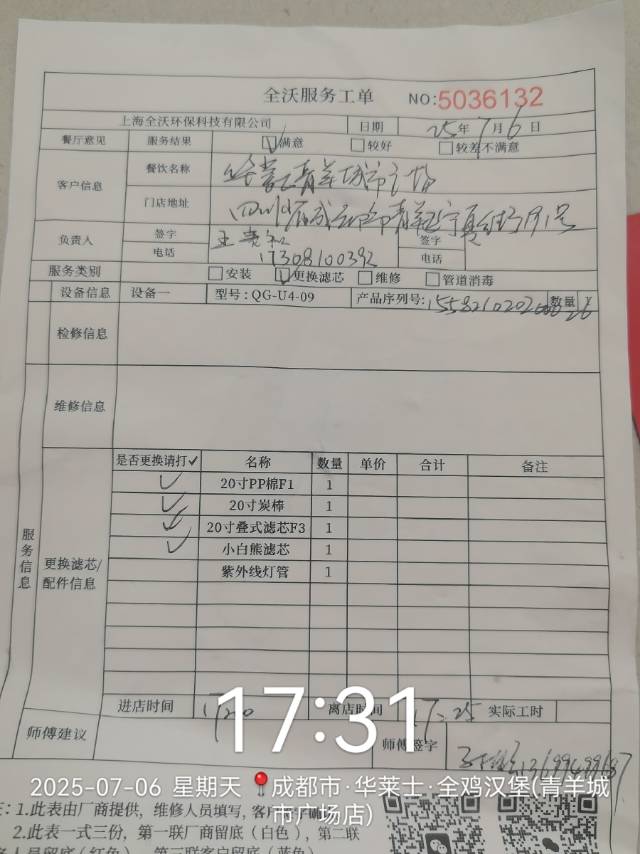 全沃服务工单 NO:5036132
上海全沃环保科技有限公司 日期 25年7月6日
餐厅意见 服务结果 满意 较好 较差不满意
客户信息 餐饮名称 青羊城市广场
门店地址 四川省成都市青羊区宁夏街 1号
负责人 签字 王 签字
电话 17308100392 电话
服务类别 安装 更换滤芯 维修 管道消毒
设备信息 设备一 型号:QG-U4-09 产品序列号: 数量
检修信息
维修信息
服务信息
更换滤芯/配件信息
是否更换请打✓ 名称 数量 单价 合计 备注
✓ 20寸PP棉F1 1
✓ 20寸炭棒 1
✓ 20寸叠式滤芯F3 1
✓ 小白熊滤芯 1
紫外线灯管 1
进店时间 离店时间 17:25 实际工时
17:31
师傅建议 师傅签字
2025-07-06 星期天 成都市·华莱士·全鸡汉堡(青羊城
市广场店)
1.此表由厂商提供，维修人员填写，客户
2.此表一式三份，第一联厂商留底（白色），第二联
人员留底（红色），第三联客户留底（蓝色）